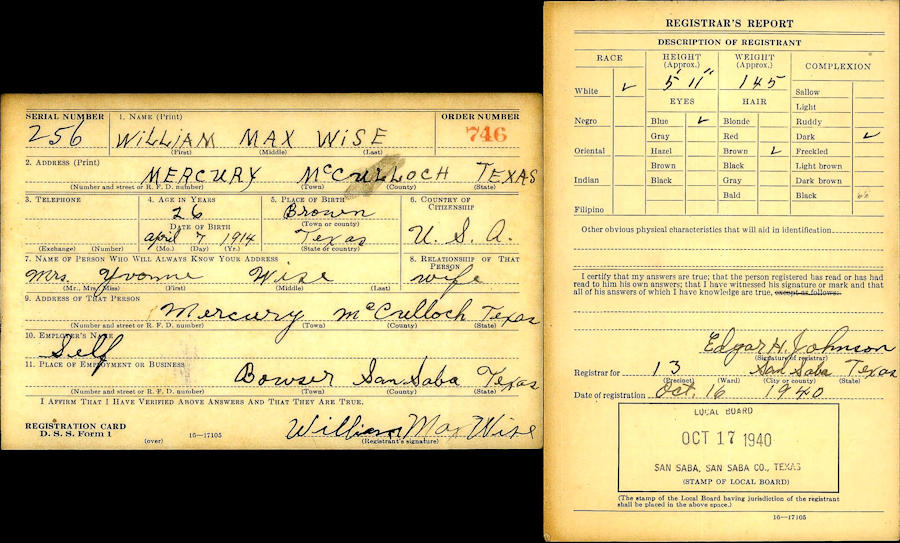 SERIAL NUMBER 1. NAME (Print) ORDER NUMBER
256 WILLIAM MAX WISE 746
(First) (Middle) (Last)
2. ADDRESS (Print)
MERCURY McCULLOCH TEXAS
(Number and street or R. F. D. number) (Town) (County) (State)
3. TELEPHONE 4. AGE IN YEARS 5. PLACE OF BIRTH 6. COUNTRY OF CITIZENSHIP
26 Brown
DATE OF BIRTH (Town or county)
April 7, 1914 Texas U. S. A.
(Exchange) (Number) (Mo.) (Day) (Yr.) (State or country)
7. NAME OF PERSON WHO WILL ALWAYS KNOW YOUR ADDRESS 8. RELATIONSHIP OF THAT PERSON
Mrs. Yvonne Wise wife
(Mr., Mrs., Miss) (First) (Middle) (Last)
9. ADDRESS OF THAT PERSON
Mercury McCulloch Texas
(Number and street or R. F. D. number) (Town) (County) (State)
10. EMPLOYER'S NAME
Self
11. PLACE OF EMPLOYMENT OR BUSINESS
Bowser San Saba Texas
(Number and street or R. F. D. number) (Town) (County) (State)
I AFFIRM THAT I HAVE VERIFIED ABOVE ANSWERS AND THAT THEY ARE TRUE.
REGISTRATION CARD
D. S. S. Form 1 16—17105 William Max Wise
(over) (Registrant's signature)
REGISTRAR'S REPORT
DESCRIPTION OF REGISTRANT
RACE HEIGHT (Approx.) WEIGHT (Approx.) COMPLEXION
White ✓ 5' 11" 145 Sallow
EYES HAIR Light
Negro Blue ✓ Blonde Ruddy
Gray Red Dark ✓
Oriental Hazel Brown ✓ Freckled
Brown Black Light brown
Indian Black Gray Dark brown
Bald Black
Filipino
Other obvious physical characteristics that will aid in identification
I certify that my answers are true; that the person registered has read or has had
read to him his own answers; that I have witnessed his signature or mark and that
all of his answers of which I have knowledge are true, except as follows:
Edgar H. Johnson
(Signature of registrar)
Registrar for 13 San Saba Texas
(Precinct) (Ward) (City or county) (State)
Date of registration Oct. 16 1940
LOCAL BOARD
OCT 17 1940
SAN SABA, SAN SABA CO., TEXAS
(STAMP OF LOCAL BOARD)
(The stamp of the Local Board having jurisdiction of the registrant
shall be placed in the above space.)
16—17105